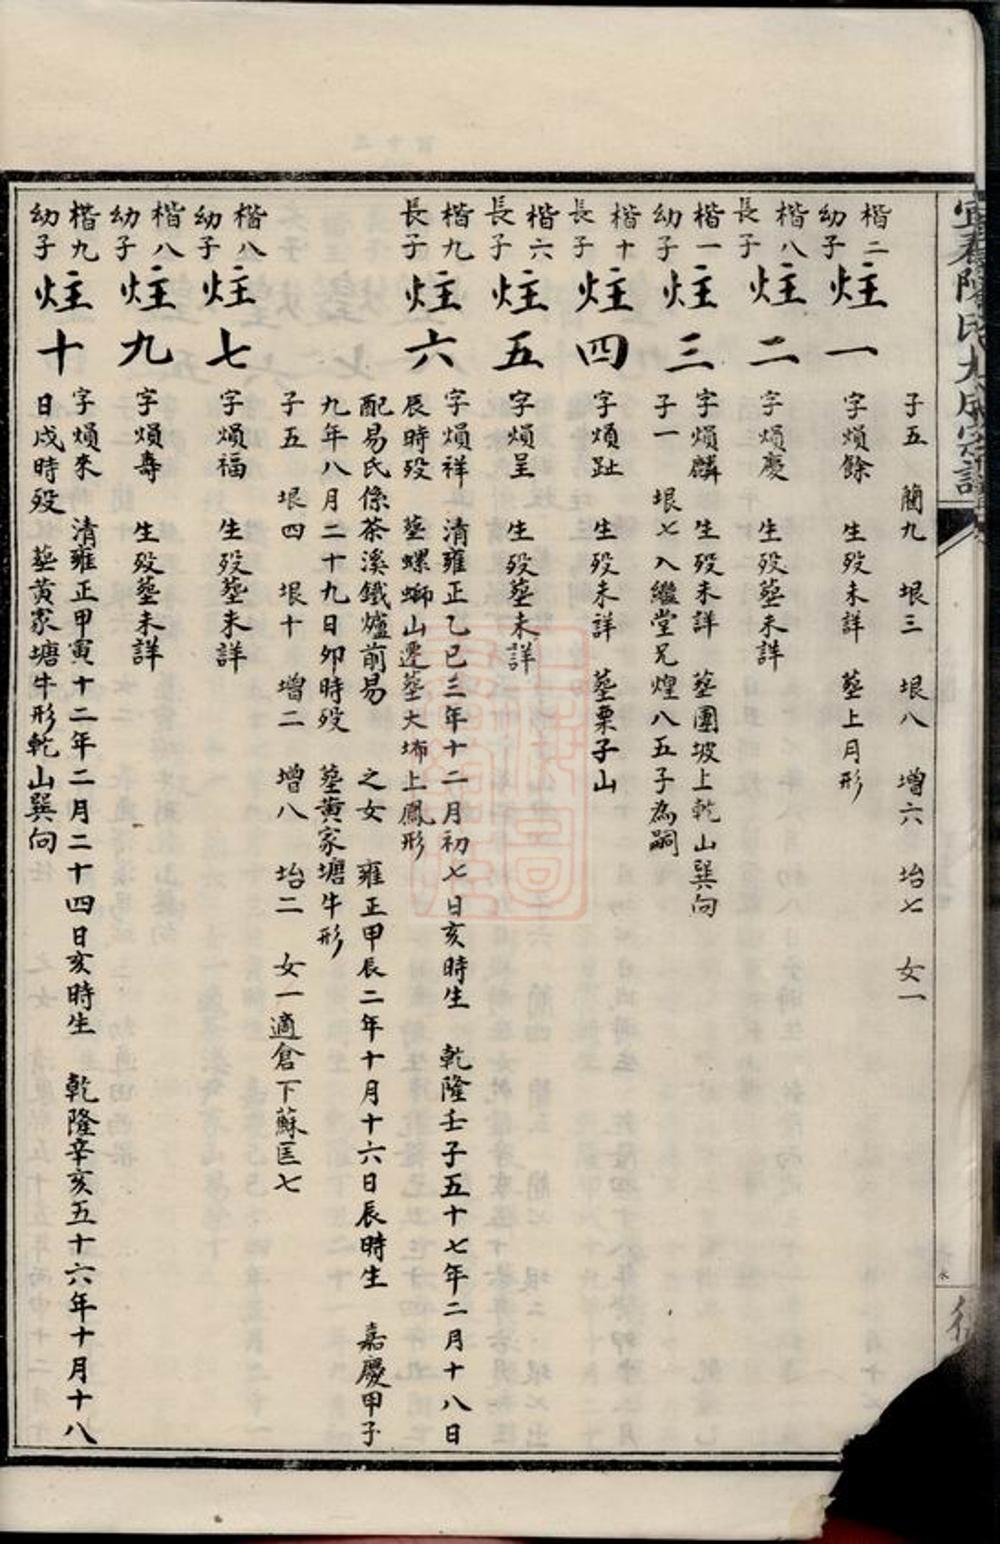 子五 蘭九 垠三 垠八 增六 垖七 女一
楷二幼子 炷一 字熉餘 生歿未詳 塟上月形
楷八長子 炷二 字熉慶 生歿塟未詳
楷一幼子 炷三 字熉麟 生歿未詳 塟團坡上乾山巽向
子一 垠七入繼堂兄煌八五子為嗣
楷十長子 炷四 字熉趾 生歿未詳 塟栗子山
楷六長子 炷五 字熉呈 生歿塟未詳
楷九長子 炷六 字熉祥 清雍正乙巳三年十二月初七日亥時生 乾隆壬子五十七年二月十八日
辰時歿 塟螺螄山遷塟大坲上鳳形
配易氏係茶溪鐵爐前易 之女 雍正甲辰二年十月十六日辰時生 嘉慶甲子
九年八月二十九日卯時歿 塟黃家塘牛形
子五 垠四 垠十 增二 增八 垖二 女一適倉下蘇匡七
楷八幼子 炷七 字熉福 生歿塟未詳
楷八幼子 炷九 字熉壽 生歿塟未詳
楷九幼子 炷十 字熉來 清雍正甲寅十二年二月二十四日亥時生 乾隆辛亥五十六年十月十八
日戌時歿 塟黃家塘牛形乾山巽向